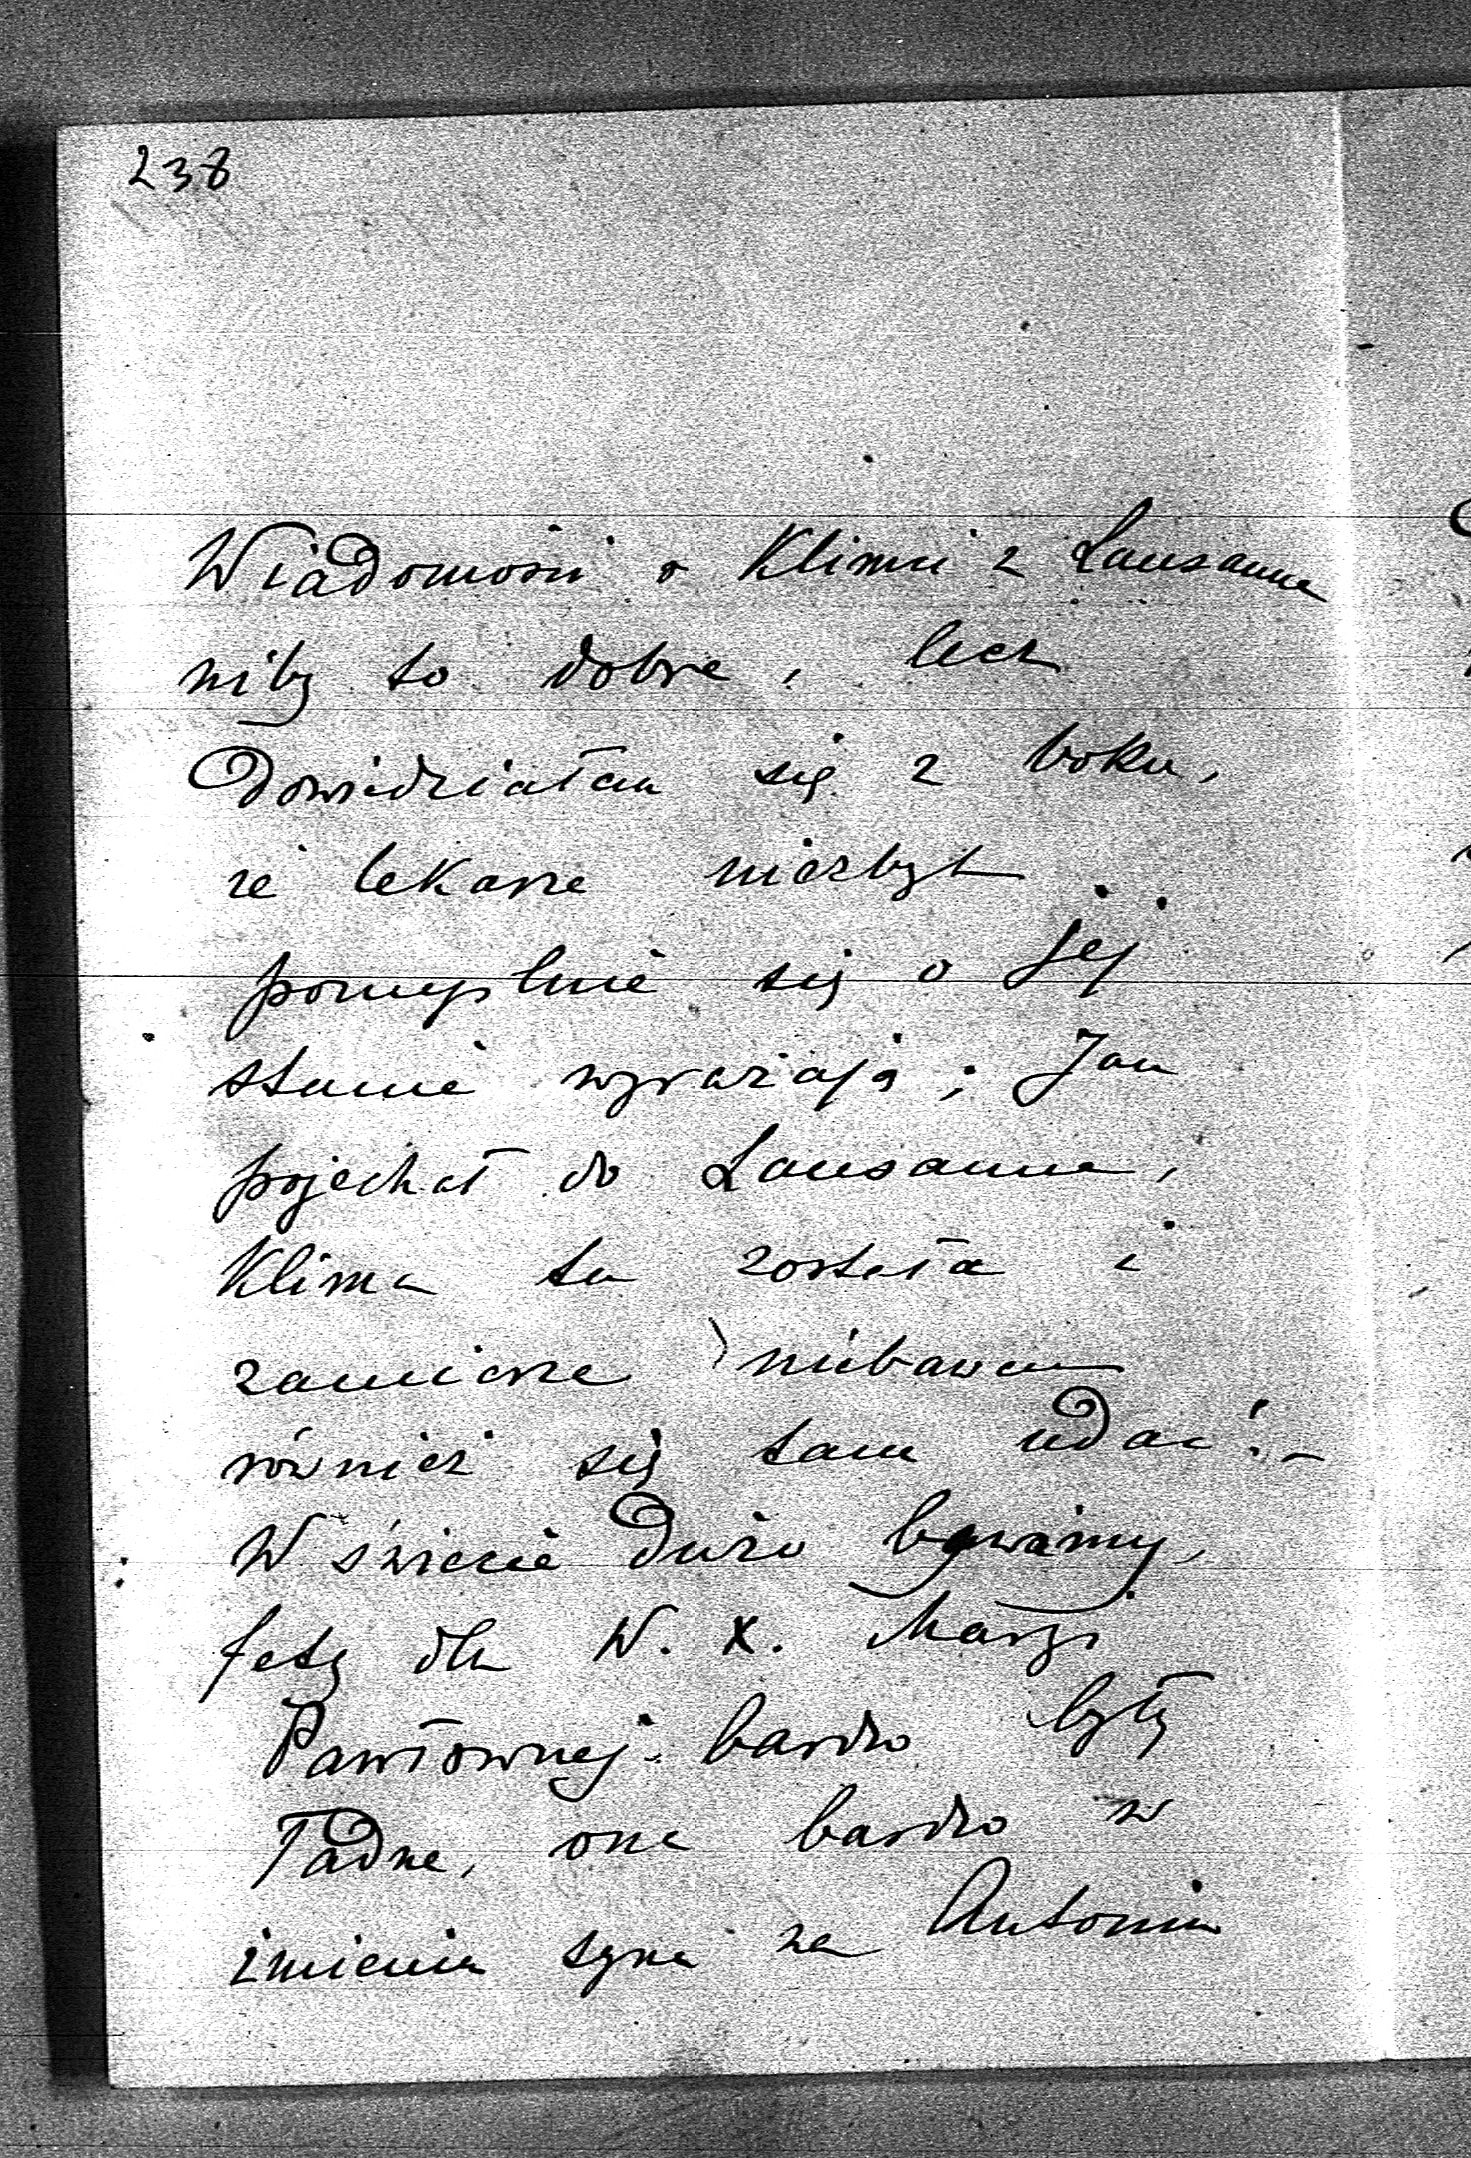 238
Wiadomości o Klimci z Lausanne
niby to dobre, lecz
dowiedziałam się z boku,
że lekarze niezbyt
pomyślnie się o jej
stanie wyrażają; Jan
pojechał do Lausanne,
Klima tu została i
zamierza niebawem
również się tam udać. –
W świecie dużo bywamy,
fety dla W. X. Maryi
Pawłownej bardzo były
ładne, ona bardzo w
imieniu syna za Antonim